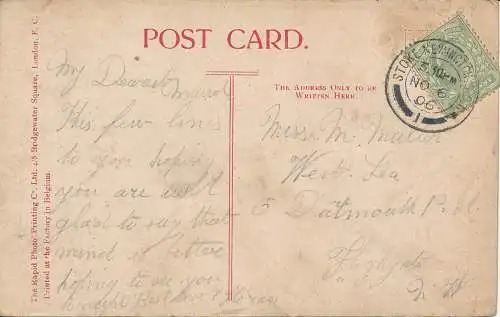 POST CARD.
The Address Only to be
Written Here.
The Rapid Photo Printing Co. Ltd. 4/5 Bridgewater Square, London, E. C.
Printed at the Factory in Belgium.
My Dearest
This few lines
to you hoping
you are well
glad to say that
mind is better
hoping to see you
Miss M.
West Lea
5 Datmouth P.
Highgate
N. W
STOKE NEWINGTON
NO 6
06
1